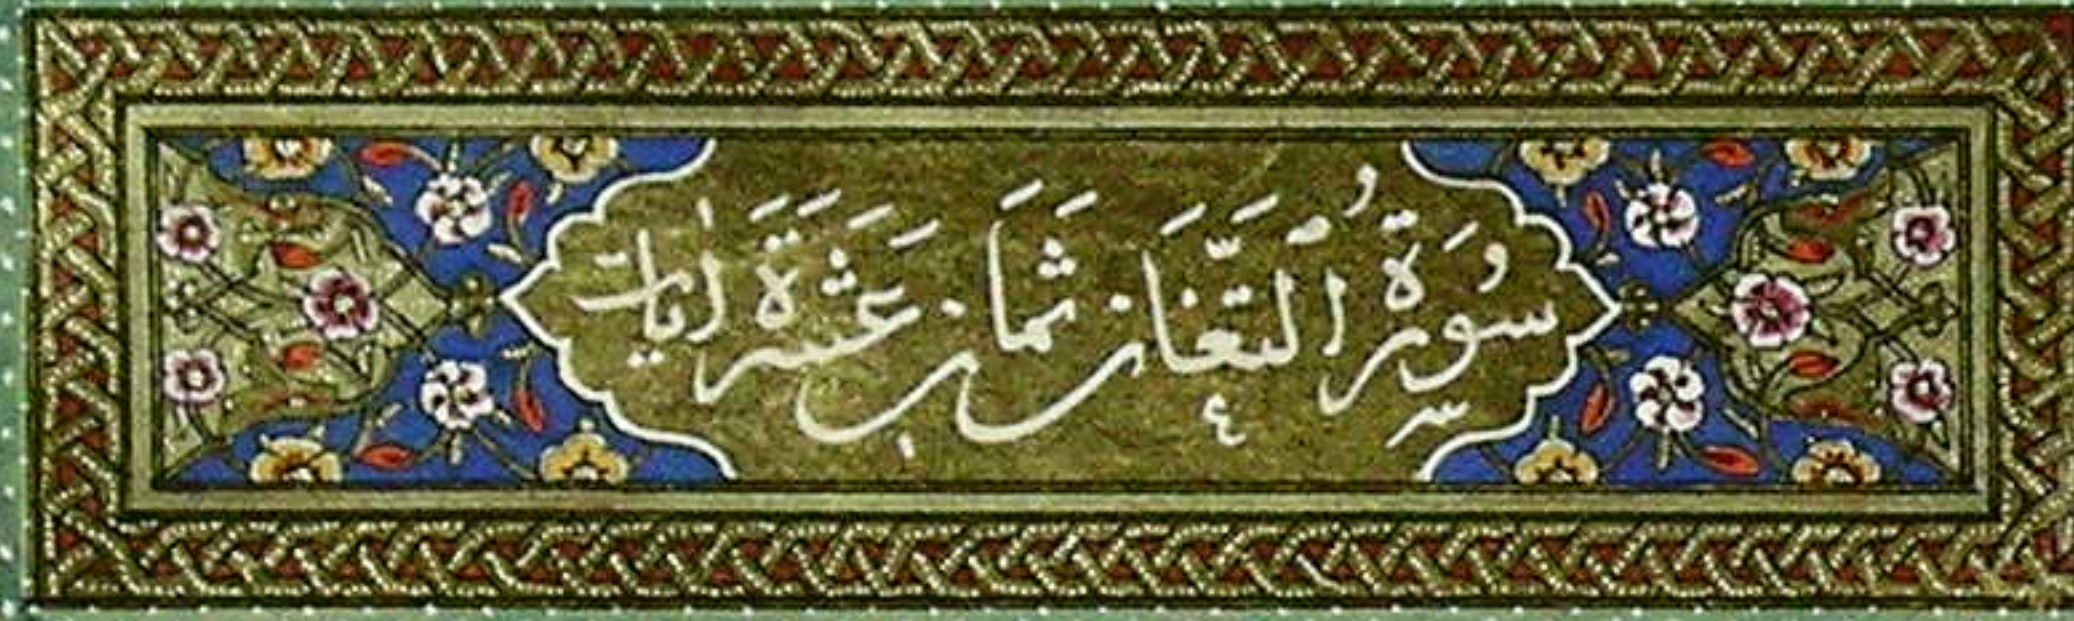 سُورَةُ التَّغَابُنِ ثَمَانَ عَشَرَةَ اٰيَات